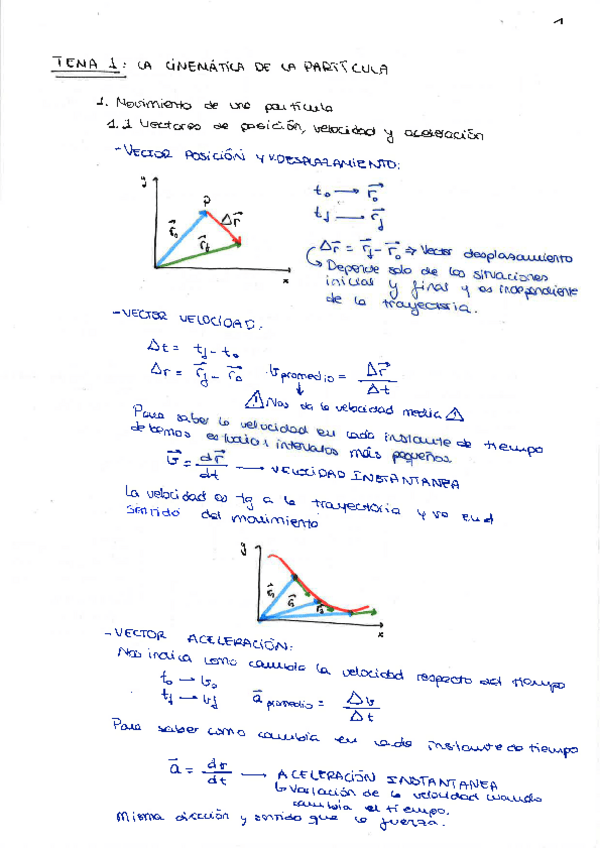 1
TEMA 1: LA CINEMÁTICA DE LA PARTÍCULA
1. Movimiento de una partícula
1.1 Vectores de posición, velocidad y aceleración
- VECTOR POSICIÓN Y V.DESPLAZAMIENTO:
y P r⃗₀ Δr⃗ r⃗f x
t₀ → r⃗₀
tf → r⃗f
Δr⃗ = r⃗f - r⃗₀ ⇒ Vector desplasamiento
↳ Depende solo de las situaciones
inicial y final y es independiente
de la trayectoria.
- VECTOR VELOCIDAD:
Δt = tf - t₀
Δr = r⃗f - r⃗₀ v promedio = Δr⃗ / Δt
⚠ Nos da la velocidad media ⚠
Para saber la velocidad en cada instante de tiempo
debemos estudiar intervalos más pequeños
v⃗ = dr⃗ / dt → VELOCIDAD INSTANTANEA
La velocidad es tg a la trayectoria y va en el
sentido del movimiento
y r⃗₁ r⃗₂ r⃗₃ x
- VECTOR ACELERACIÓN:
Nos indica como cambia la velocidad respecto del tiempo
t₀ → v₀
tf → vf a⃗ promedio = Δv / Δt
Para saber como cambia en cada instante de tiempo
a⃗ = dv / dt → ACELERACIÓN INSTANTANEA
↳ Variación de la velocidad cuando
cambia el tiempo.
Misma dirección y sentido que la fuerza.